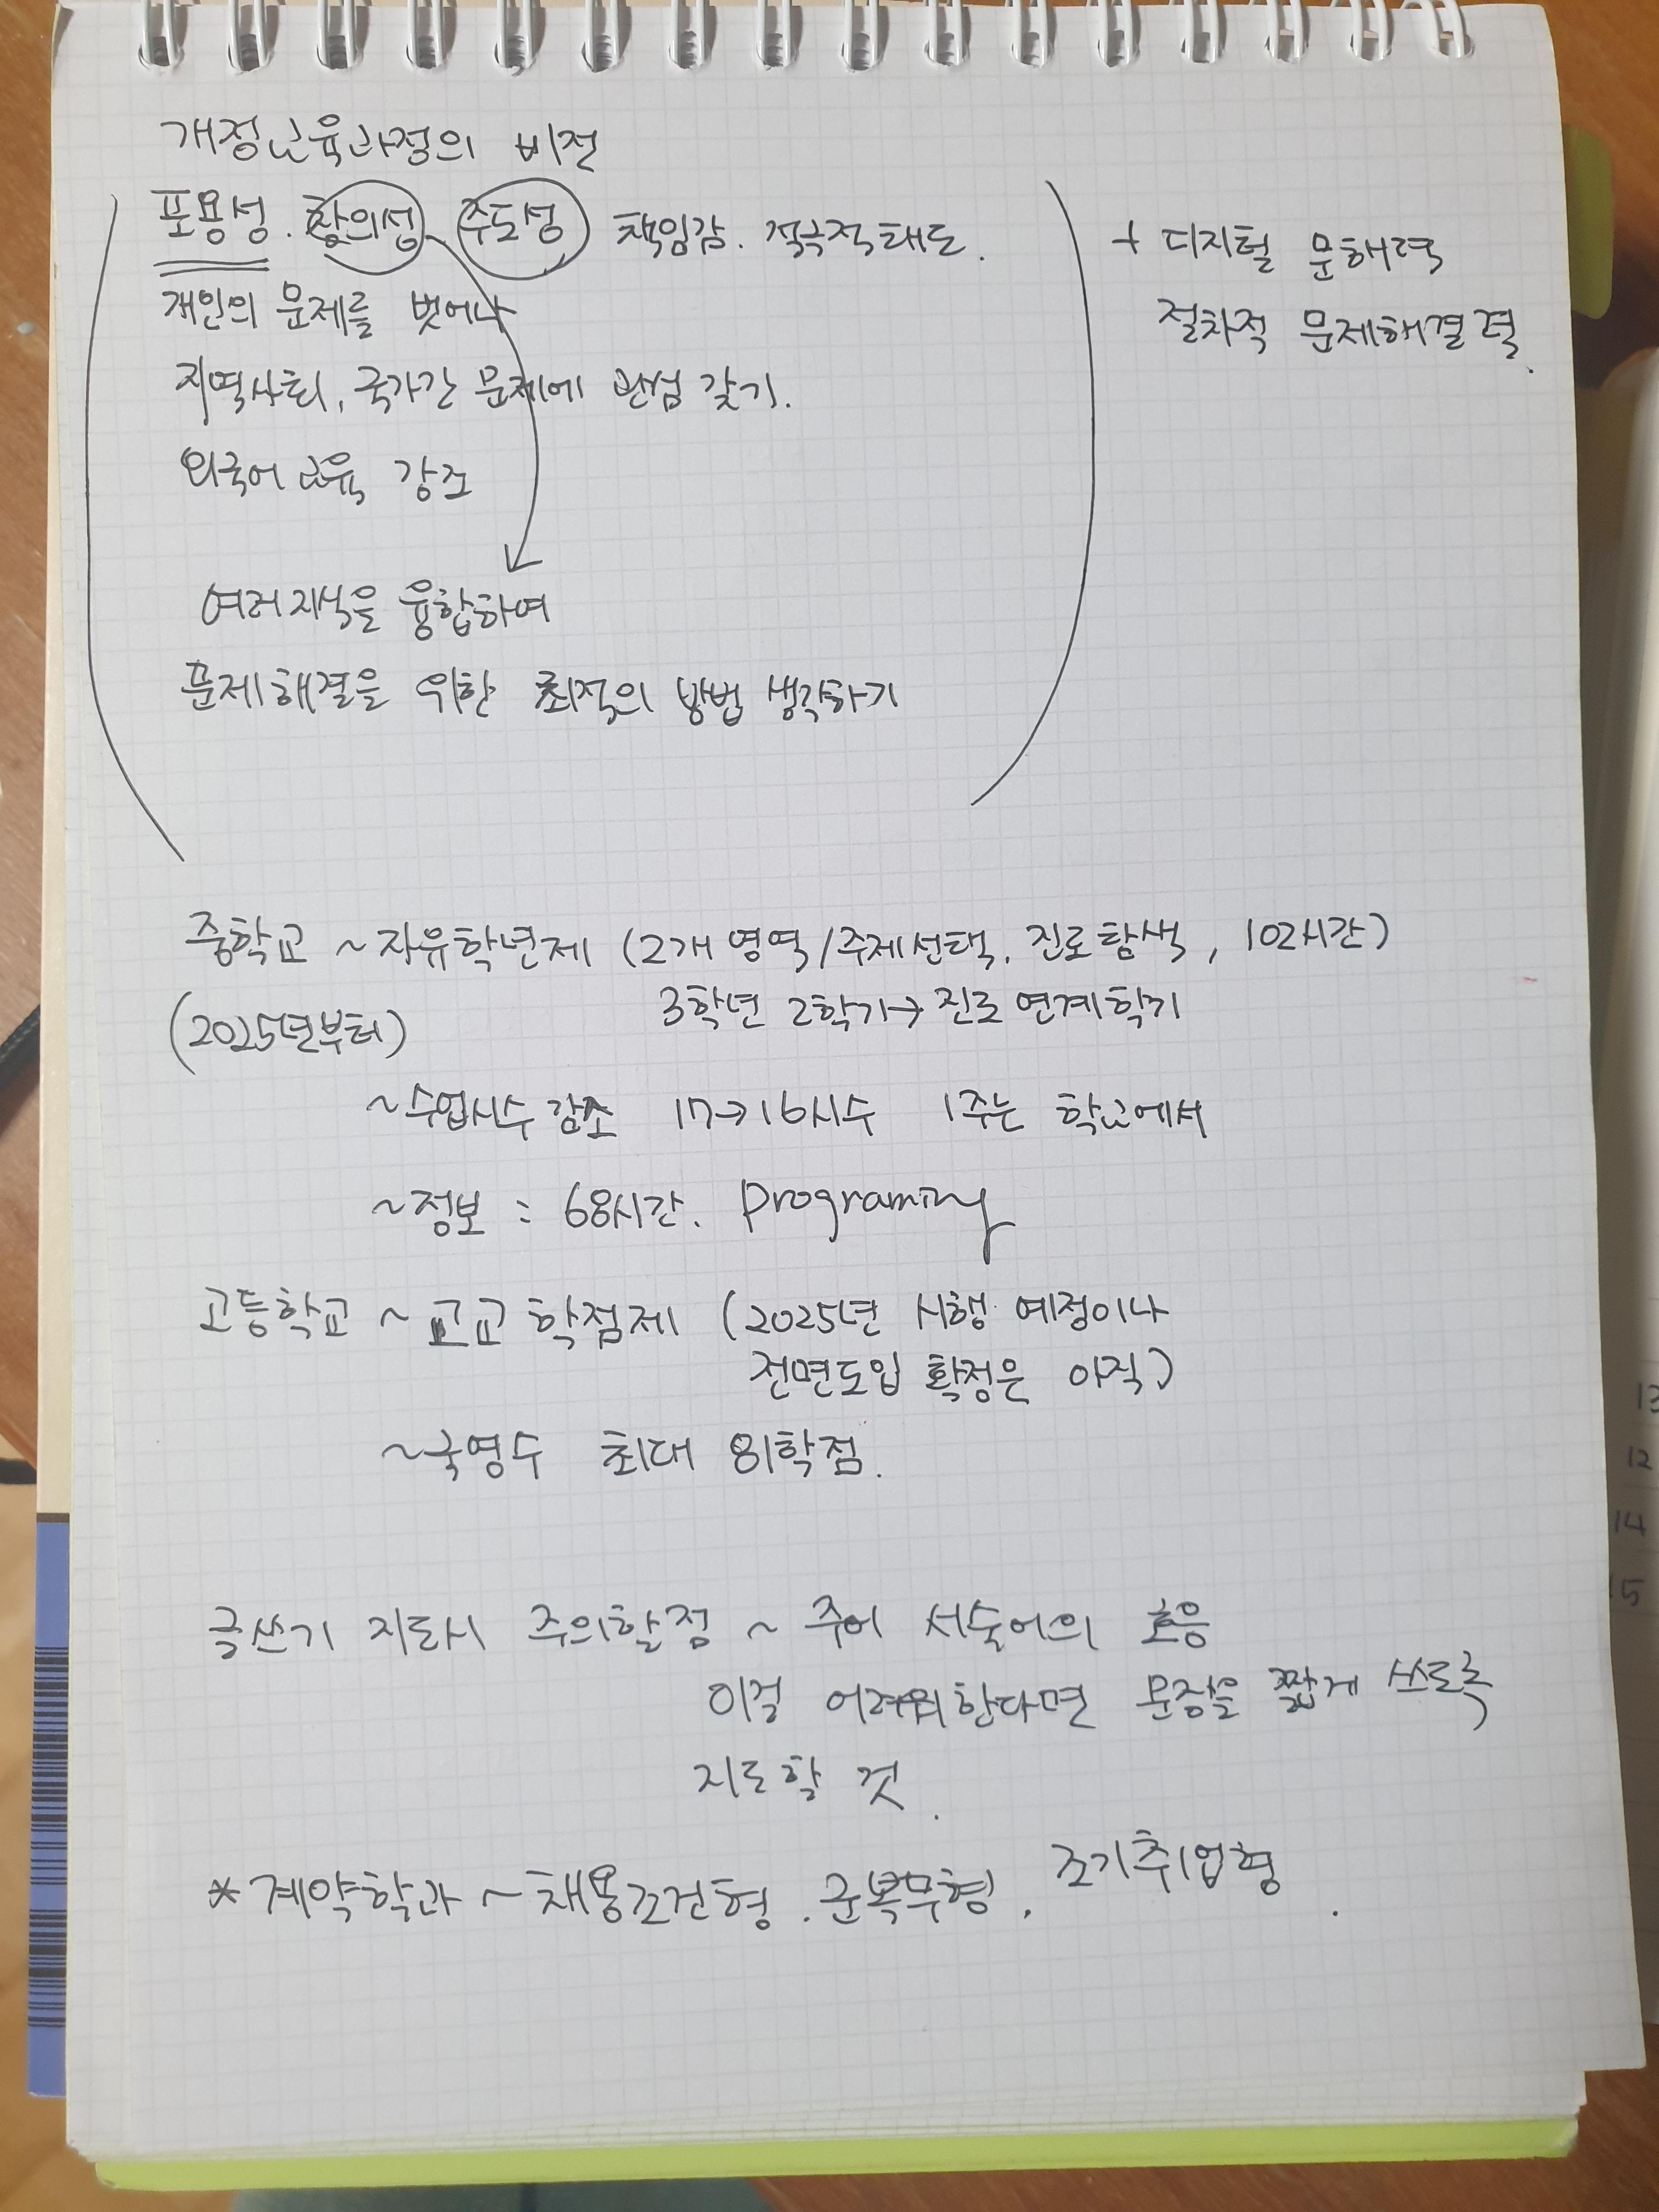 개정교육과정의 비전
포용성. 창의성, 주도성 책임감. 적극적태도.
개인의 문제를 벗어나
지역사회, 국가간 문제에 관심 갖기.
외국어 교육 강조
여러지식을 융합하여
문제해결을 위한 최적의 방법 생각하기
+ 디지털 문해력
절차적 문제해결력.
중학교 ~자유학년제 (2개 영역/주제선택, 진로탐색, 102시간)
(2025년부터)
3학년 2학기→ 진로 연계학기
~수업시수 감소 17→16시수 1주는 학교에서
~정보 : 68시간. programing
고등학교 ~ 고교 학점제 (2025년 시행 예정이나
전면도입 확정은 아직)
~국영수 최대 81학점.
글쓰기 지도시 주의할점 ~ 주어 서술어의 호응
이걸 어려워한다면 문장을 짧게 쓰도록
지도할 것.
*계약학과 ~채용조건형. 군복무형, 조기취업형.
13
12
14
15